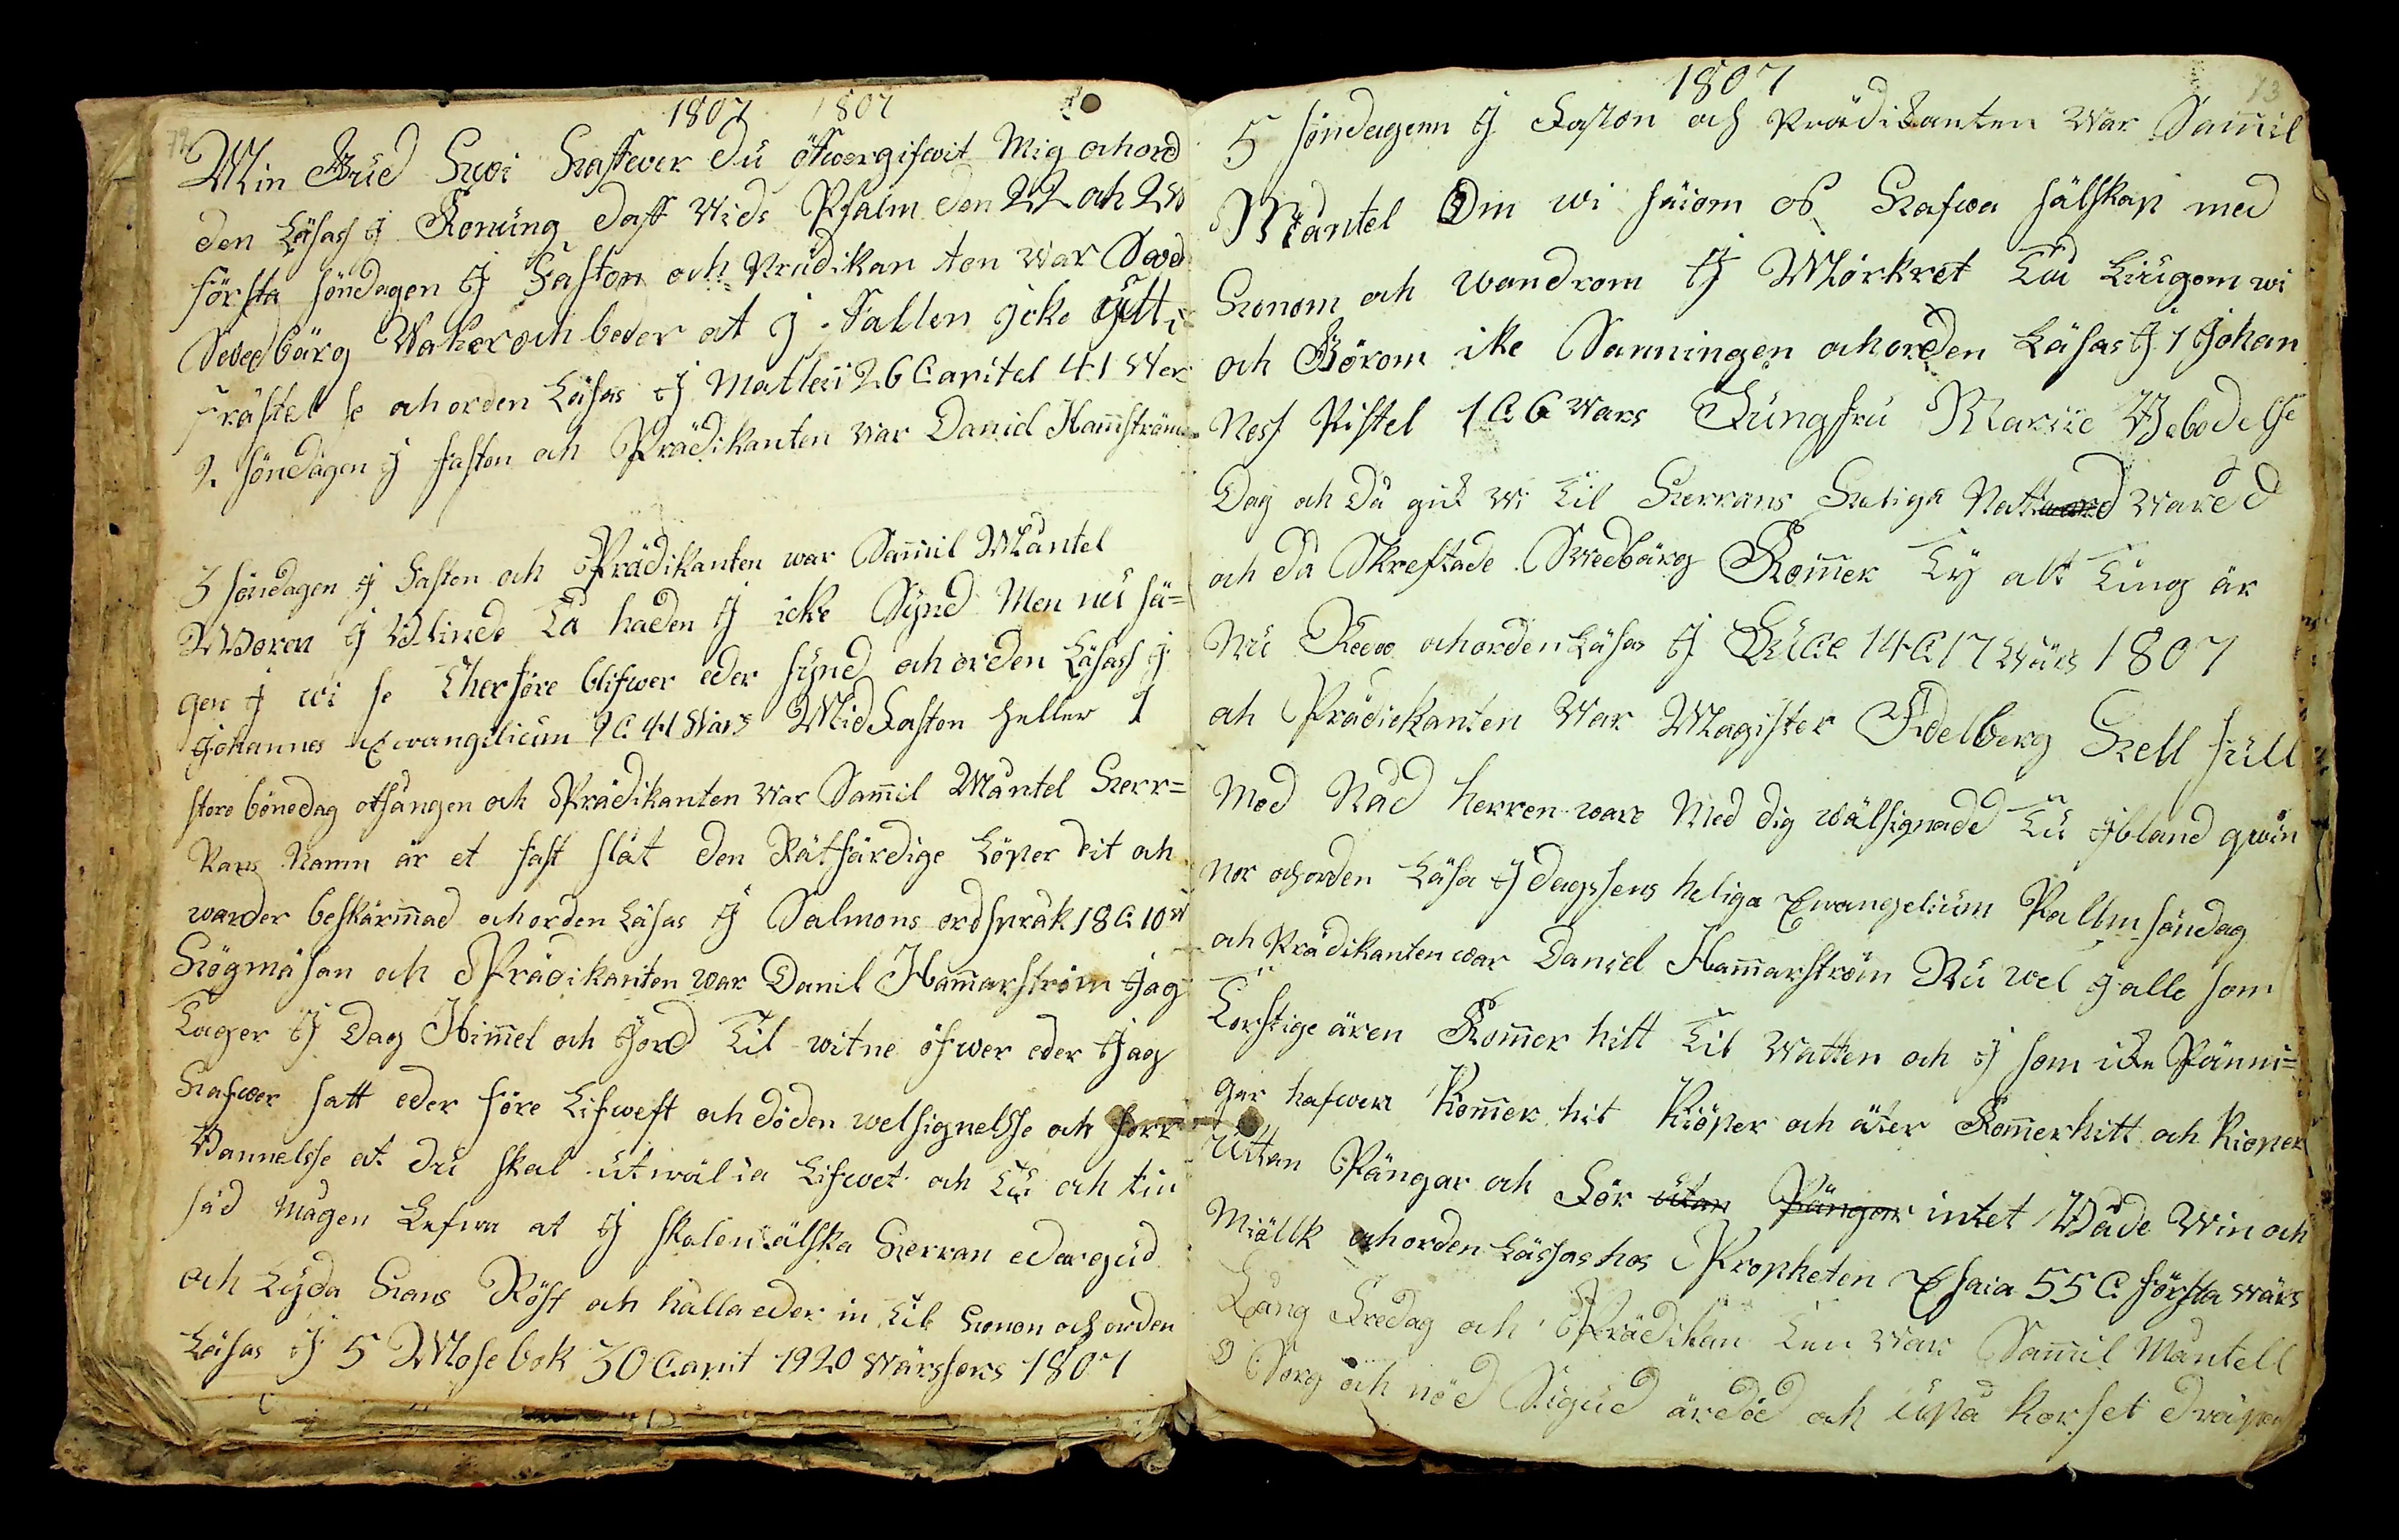 72
1807 1807
Min Gud Hwi Haffwer du öfwergifwit Mig ochord
den Läsas J Konung Daff Vids Psalm den 22 och 2 W
första söndagen J Faston och Prädikan ten war Swed
Swedbärg Waker och beder at J Fallen jcke Utti
frästel se ochorden Läsas J Matteii 26 Capitel 41 Wer
2. söndagen J faston och Prädikanten war Daniel Hamström
3 söndagen J Faston och Prädikanten war Samuil Mantel
Woren J Blinde Tå haden J icke Synd Men nu sä=
gen J wi se Therföre blifwer eder synd och orden Läsass J
Johannes Ewangelium 9 C 41 Wärs MidFaston heller 1
store bönedag otsången och Prädikanten war Samuil Mantel Herr=
Rans Namn är et fast slåt den Rätfärdige Löper dit och
warder beskärmad ochorden Läsas J Salmons ordspråk 18 C 10 W
Högmäsan och Prädikanten war Danil Hammarström Jag
Tager J Dag Himmel och Jord Til witne öfwer eder Jag
Hafwer satt eder före Lifweft och döden welsignelsse och förr
Bannelsse at du skal utwälia Lifwet och Tu och tin
säd Mågen Lefwa at J skolen älska Herran edar gud
och Lyda Hans Röst och hålla eder in til honon och orden
Läsas J 5 Mose bok 30 Capit 1920 wärssers 1807
73
1807
5 söndagenn J Faston och Prädikanten War Samuil
Mantel Om wi säiom os Hafwa sälskap med
Honom och wandrom J Mörkret Tå Liugom wi
och Görom ike Sanningen ochorden Läsas J 1 Johan
Ness Pistel 1 C 6 wars Jungfru Mariie Bebodelse
Dag och Då gik wi til Herrans Heliga Natt ward wared
och då Skreftade Swedbärg Kommer Ty alt Ting är
Nu Redo ochorden Läsas J Lucæ 14 C 17 Wärs 1807
och Prädickanten War Magister Edelberg Hell full
Med Nåd herren ware Med dig wälsignade Tu jbland qwin
nor ochorden Läsa J dagssens heliga Ewangelium Pallm söndag
och Prädikanten war Daniel Hammarström Nu wel J alle som
Torstige ären Kommer hitt Til Watten och J som icke Pänni=
gar hafwen Kommer hit Kiöper och äter Kommer hitt och Kiöper
Uttan Pängar och För utan Pängar intet Både Win och
Miällk ochorden Lässas hos Propheten Esaia 55 C första wärs
Lång Fredag och Prädikan ten war Samuil Mantell
O Sorg och nöd Sigud ärdöd och upå Korset dräpen